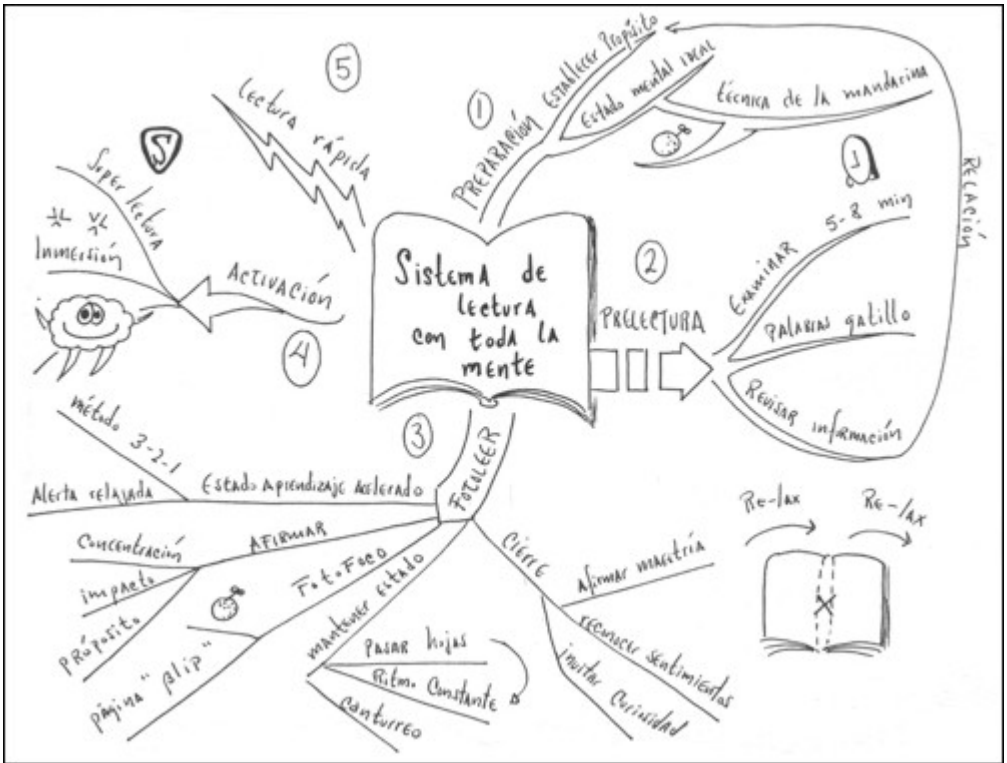 Sistema de
lectura
con toda la
mente
1
PREPARACIÓN
Establecer Propósito
Estado mental ideal
técnica de la mandarina
2
PRELECTURA
Examinar 5-8 min
Palabras gatillo
Revisar información
RELACIÓN
3
FOTOLEER
Estado Aprendizaje Acelerado
método 3-2-1
Alerta relajada
AFIRMAR
Concentración
impacto
própósito
FotoFoco
página "Blip"
mantener Estado
PASAR hojas
Ritmo Constante
canturreo
CIERRE
Afirmar maestría
reconocer sentimientos
invitar curiosidad
Re-lax
Re-lax
4
ACTIVACIÓN
Super lectura
S
Inmersión
5
lectura rápida